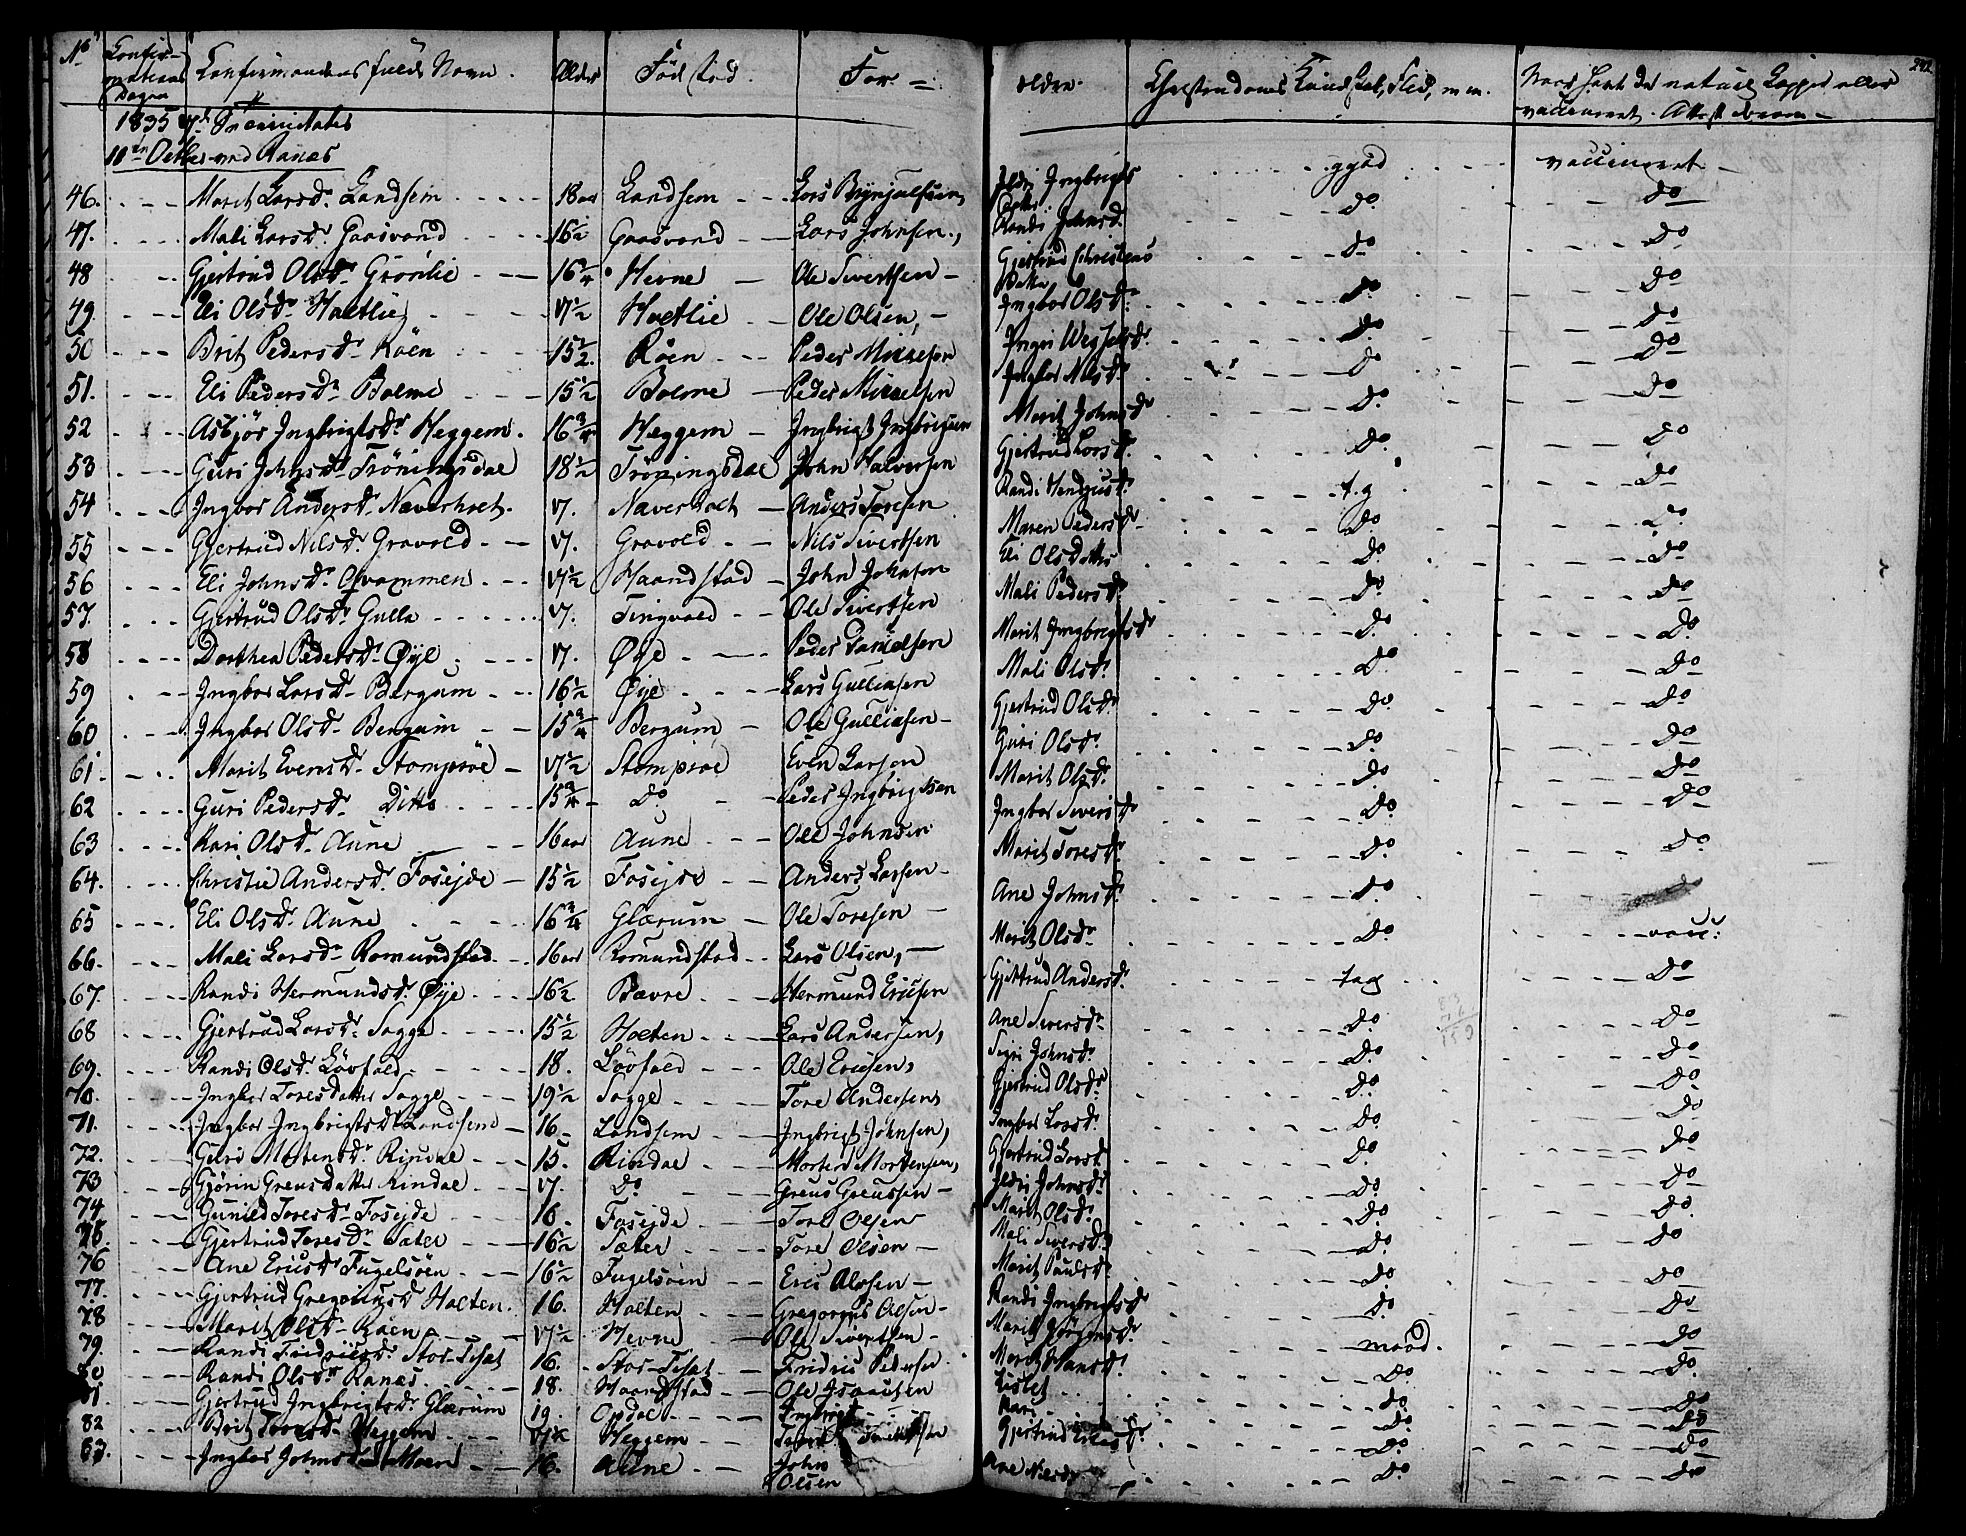 No Confirmations Dagen Confirmandens fulde Navn. Alder Fødested. For= ældre. Christendoms Kundskab, Flid, m.m. Naar havt de naturl. Kopper eller vaccineret. Attest derom 242
1835 Trinitatis
11te Octbr ved Ranæs
46. Marit Larsdr Landsem 18 aar Landsem Lars Brynjulfsen Ildri Ingbrigts ggod vaccineret
47. Mali Larsdr Gaasvand 16½ Gaasvand Lars Johnsen, Randi Johnsd. Do Do
48 Gjertrud Olsdr Grönlie 16¾ Hevne Ole Sivertsen Gjertrud Christens Do Do
49. Eli Olsdr Holtlie 17½ Holtlie Ole Olsen, Ingbor Olsdr Do Do
50 Brit Pedersdr Röen 15½. Röen Peder Mikkelsen Ingri Do Do
51. Eli Pedersdr Bolme 15½ Bolme Peder Mikkelsen Ingbor Nilsdr Do Do
52 Asbjör Ingbrigtsdr Heggem. 16¾ Heggem Ingbrigt Ingbrigtsen Marit Johnsdr Do Do
53 Guri Johnsdr Tröningsdal 18½ Tröningsdal John Halvorsen Gjertrud Larsdr. Do Do
54 Ingbor Andersdr Næverholt. 17. Næverholt Anders Toresen Randi Hendriksdr. t.g Do
55 Gjertrud Nilsdr Gravold 17. Gravold Nils Sivertsen Maren Pedersdr Do Do
56 Eli Johnsdr Qvammen 17½ Haandstad John Johnsen Eli Olsdatter Do Do
57. Gjertrud Olsdr Gulla 17. Tingvold Ole Sivertsen Mali Pedersdr Do Do
58 Dorthea Pedersdr Øye 17. Øye Peder Danielsen Marit Ingbrigtsdr Do Do
59 Ingbor Larsdr Bergum 16½ Øye Lars Gulliksen Mali Olsdr. Do Do
60 Ingbor Olsdr Bergum 15¾ Bergum Ole Gulliksen Gjertrud Olsdr Do Do
61. Marit Evensdr Stomprøe 17½ Stomprøe Even Larsen Guri Olsdr. Do Do
62 Guri Pedersdr Ditto 15¾ Do Peder Ingbrigtsen Marit Olsdr. Do Do
63 Kari Olsdr Aune 16 aar Aune Ole Johnsen Ingbor Siversdr Do Do
64. Christie Andersdr. Foseide 15½ Foseide Anders Larsen Marit Toresdr. Do
65 Eli Olsdr. Aune 16¾ Glærum Ole Toresen Ane Johnsdr. Do
66. Mali Larsdr Romundstad 16 aar Romundstad Lars Olsen, Marit Olsdr Do vacc:
67. Randi Hermundsdr Øye 16½ Bævre Hermund Ericsen Gjertrud Andersdr tag Do
68 Gjertrud Larsdr Sogge 15½ Holten Lars Andersen, Ane Siversdr Do Do
69. Randi Olsdr Lövfald 18. Lövfald Ole Ericsen, Sigri Johnsdr Do Do
70. Ingbor Toresdatter Sogge 19½ Sogge Tore Andersen, Gjertrud Olsdr Do Do
71. Ingbor Ingbrigtsdr Landsem 16. Landsem Ingbrigt Johnsen, Ingbor Larsdr. Do Do
72. Guri Mortensdr. Rindal 15. Rindal Morten Mortensen, Gjertrud Larsd Do Do
73 Gjörin Greusdatter Rindal 17. Do Greus Greussen Ildri Johnsdr Do Do
74 Gunild Toresdr Foseide 16 Foseide Tore Olsen Marit Olsdr. Do Do
75. Gjertrud Toresdr Sæter 16½ Sæter Tore Olsen Mali Siversdr Do Do
76 Ane Ericsdr Fugelsöen 16½ Fugelsöen Eric Olssen Marit Paulsdr Do Do
77. Gjertrud Gregoriusdr Holten. 16. Holten Gregorius Olsen Randi Ingbrigtsdr Do Do
78 Marit Olsdr Röen 17½ Hevne Ole Sivertsen Marit Jörgensdr. maad. Do
79. Randi Fridricsdr. Stor-Tisæt 16. Stor-Tisæt Fridric Pedersen Marit Hansdr Do Do
80 Randi Olsdr Ranæs 18. Haandstad Ole Isaacsen Lisbet Do Do
81 Gjertrud Ingbrigtsdr Glærum 19. Opdal Ingbrigt Kari Do Do
82 Brit Heggem Heggem Gjertrud Do Do
83. Ingbor Johnsdr Moen 16. Aune John Olsen Ane Do Do